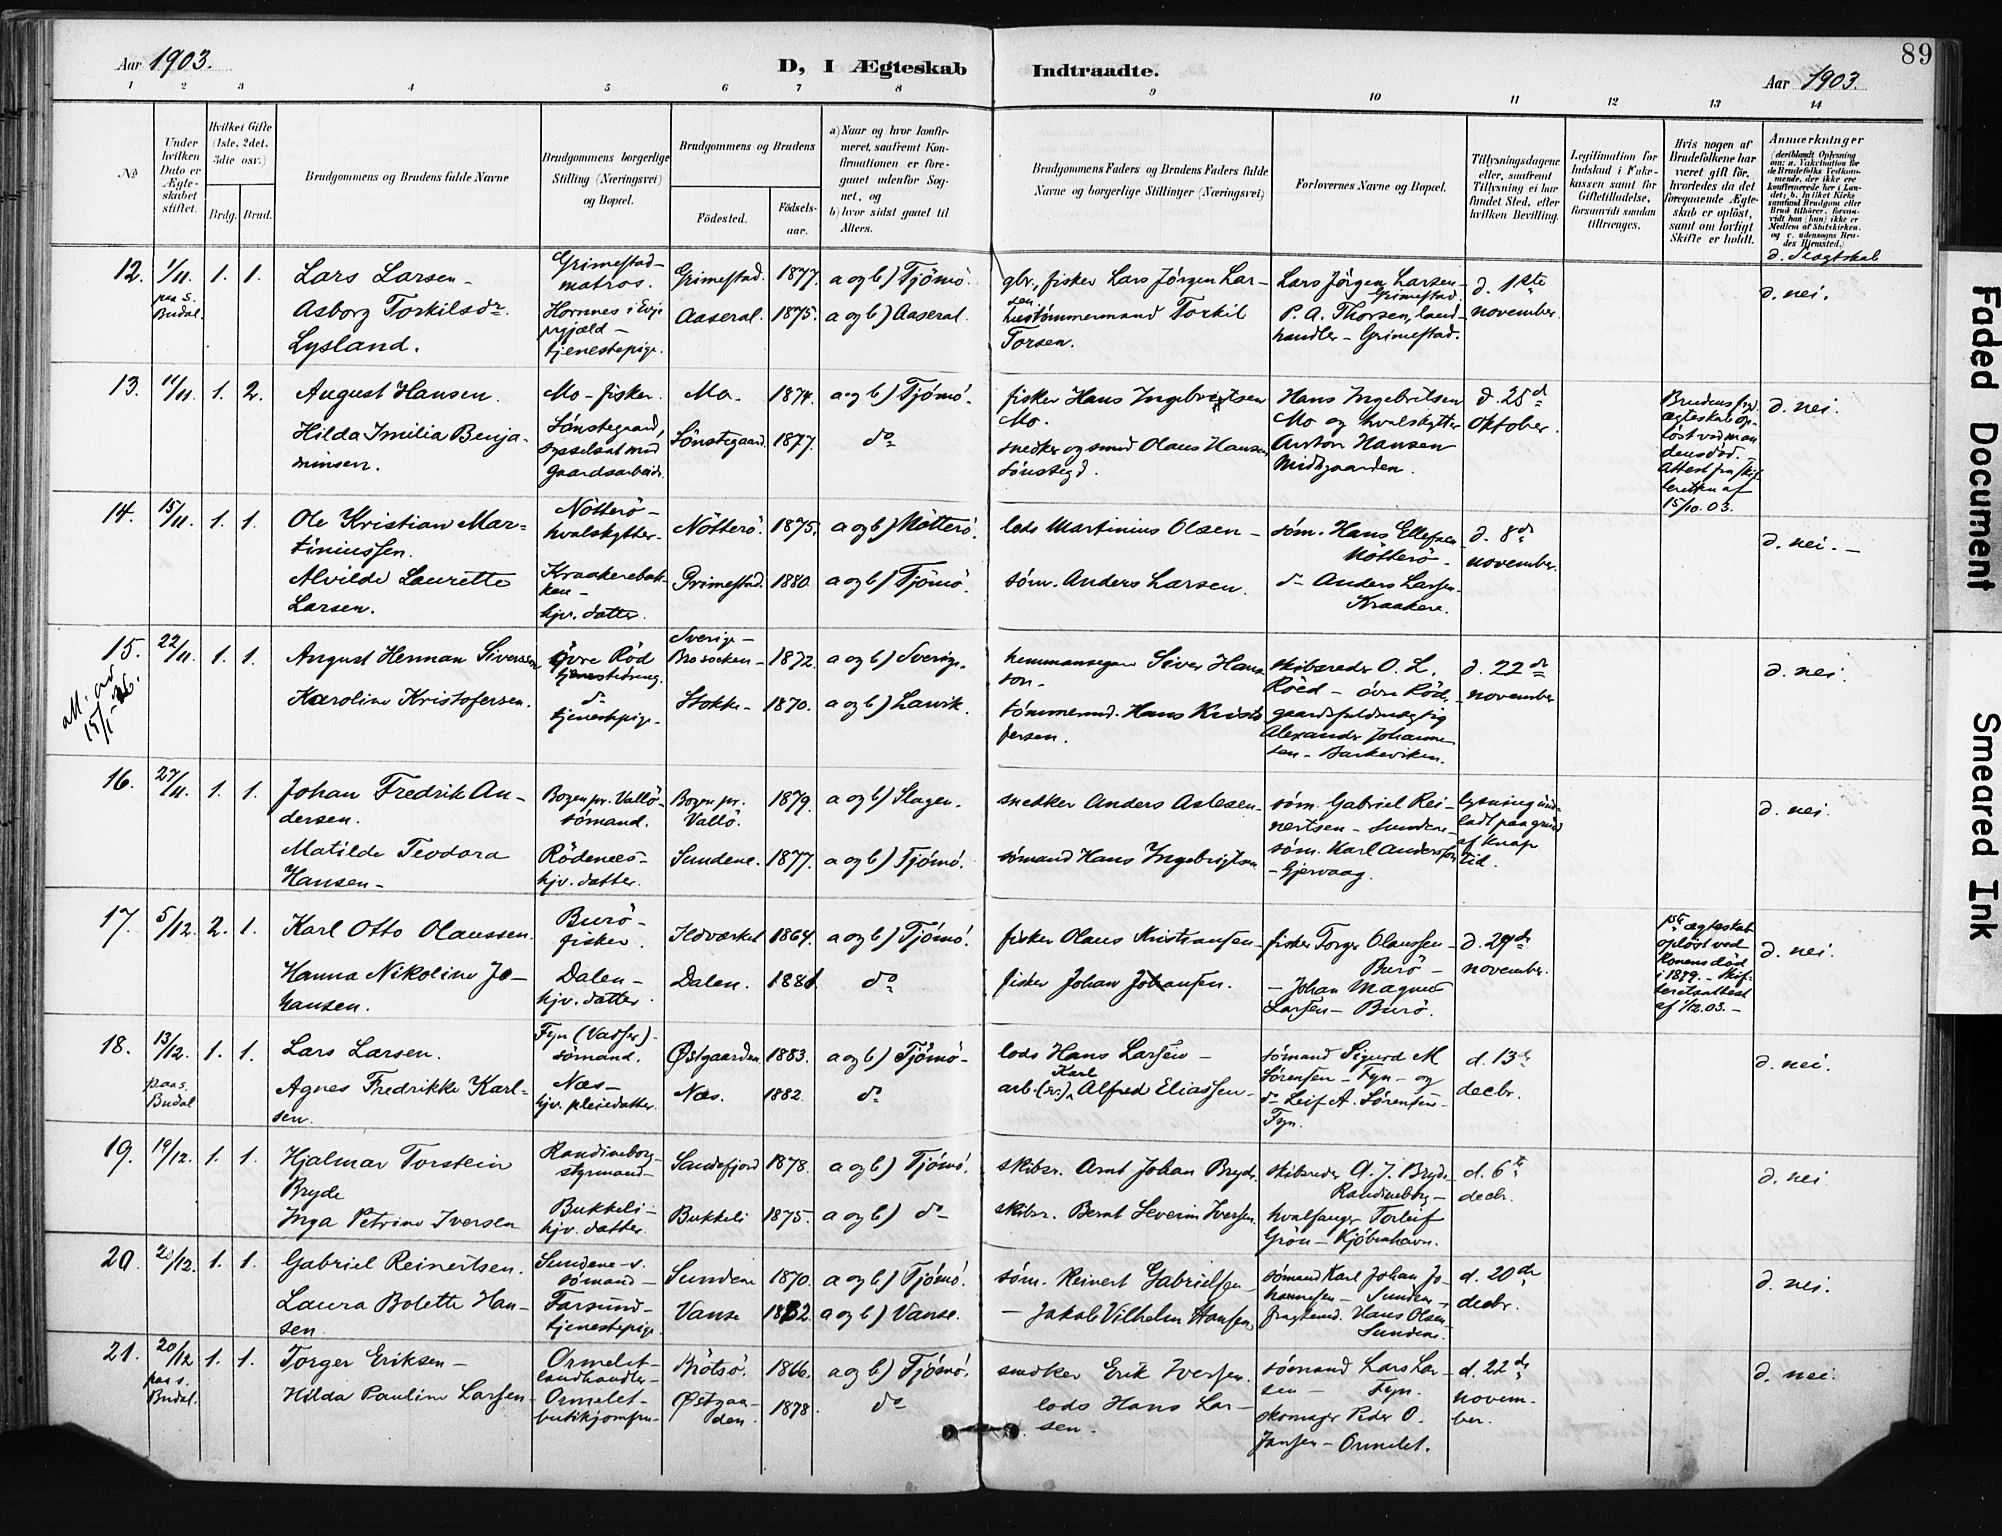 89
Aar 1903.
D, I Ægteskab Indtraadte.
Aar 1903.
1 2 3 4 5 6 7 8 9 10 11 12 13 14
No
Under hvilken Dato er Ægteskabet stiftet.
Hvilket Gifte (1ste, 2det, 3die osv.)
Brdg. Brud.
Brudgommens og Brudens fulde Navne
Brudgommens borgerlige Stilling (Næringsvei) og Bopæl.
Brudgommens og Brudens
Fødested.
Fødselsaar.
a) Naar og hvor konfirmeret, saafremt Konfirmationen er foregaaet udenfor Sognet, og
b) hvor sidst gaaet til Alters.
Brudgommens Faders og Brudens Faders fulde Navne og borgerlige Stillinger (Næringsvei)
Forlovernes Navne og Bopæl.
Tillysningsdagene eller, saafremt Tillysning ei har fundet Sted, efter hvilken Bevilling.
Legitimation for Indskud i Enkekassen samt for Giftetilladelse, forsaavidt saadan tiltrænges.
Hvis nogen af Brudefolkene har været gift før, hvorledes da det foregaaende Ægteskab er opløst, samt om lovligt Skifte er holdt.
Anmærkninger
d. Slægtskab
12. 1/11 1. 1. Lars Larsen - Grimestad - matros. Grimestad. 1877. a og b) Tjömö. gbr., fisker Lars Jørgen Larsen Lars Jørgen Larsen Grimestad. d. 1ste november d. nei.
paa s. Budal. Asborg Torkilsdr. Lysland. Hornnes i Evje prgjæld - tjenestepige. Aaseral. 1875. a og b) Aaseral. tømmermand Torkil Torsen. P. A. Thorsen, landhandler - Grimestad.
13. 11/11. 1. 2. August Hansen. Mo - fisker. Mo. 1874. a og b) Tjömö. fisker Hans Ingebrigtsen Mo. Hans Ingebretsen Mo og hvalskytter d. 25de Oktober. d. nei.
Hilda Imilia Benjaminsen. Sønstegaard, sysselsat med gaardsarbeide. Sønstegaard. 1877. do snedker og smed Olaus Hansen Sønstegd. Anton Hansen Midtgaarden.
Brudens ægteskab opløst ved mandens død. - Attest fra skifteretten af 15/10. 03.
14. 15/11. 1. 1. Ole Kristian Martiniussen. Nötterö - hvalskytter. Nötterö. 1875. a og b) Nötterö. lods Martinius Olsen - söm. Hans Ellefsen Nötterö - d. 8de november. d. nei. -
Alvilde Laurette Larsen. Kraakerebakken - hjv. datter. Grimestad. 1880. a og b) Tjömö. söm. Anders Larsen. do Anders Larsen Kraakere.
15. 22/11. 1. 1. August Herman Siversen Øvre Röd tjenestedreng. Sverige - Bro socken - 1872. a og b) Sverige. hemmansegare Siver Hansson - skibsreder O. L. Röed - øvre Röd. d. 22de november d. nei.
att. ad 15/1-26.
Karoline Kristofersen. do tjenestepige. Stokke - 1870. a og b) Larvik. tømmermd. Hans Kristofersen. gaardsfuldmægtig Alexander Johannesen - Barkeviken.
16. 27/11. 1. 1. Johan Fredrik Andersen. Bogen pr. Vallö - sömand. Bogen pr. Vallö. 1879. a og b) Slagen. snedker Anders Aslesen. söm. Gabriel Reinertsen - Sundene - lysning undladt paa grund af knap tid. d. nei.
Matilde Teodora Hansen - Rödenees - hjv. datter. Sundene. 1877. a og b) Tjömö. sömand Hans Ingebrigtsen söm. Karl Andersen - Gjervaag.
17. 5/12. 2. 1. Karl Otto Olaussen. Burö - fisker. Ildværket 1864. a og b) Tjömö. fisker Olaus Kristiansen - fisker Torger Olaussen - Burö - d. 29de november. d. nei.
Hanna Nikoline Johansen. Dalen - hjv. datter. Dalen. 1881 do fisker Johan Johansen. - Johan Magnus Larsen - Burö.
ægteskab opløst ved konens død i 1899. - Skifteretsattest af 1/12. 03. -
18. 13/12. 1. 1. Lars Larsen. Fyn (Vasser) - sömand. Østgaarden. 1883. a og b) Tjömö - lods Hans Larsen - sömand Sigurd M Sørensen - Fyn - og d. 13de decbr. d. nei.
paa s. Budal Agnes Fredrikke Karlsen. Næs - hjv. pleiedatter. Næs. 1882. do arb. Karl Alfred Eliassen - do Leif A. Sørensen - Fyn.
19. 19/12. 1. 1. Hjalmar Torstein Bryde Randineborg - styrmand - Sandefjord 1878. a og b) Tjömö. skibsr. Arnt Johan Bryde. skibsreder A. J. Bryde Randineborg - d. 6te decbr. d. nei
Inga Petrine Iversen Bukkeli - hjv. datter. Bukkeli 1875. a og b) do skibsr. Bernt Severin Iversen. hvalfanger Torleif Grön - Kjöbenhavn.
20. 20/12. 1. 1. Gabriel Reinertsen. Sundene - sömand - Sundene 1870. a og b) Tjömö. söm. Reinert Gabrielsen - sömand Karl Johan Johannesen - Sundene - d. 20de decbr. d. nei.
Laura Bolette Hansen. Farsund - tjenestepige. Vanse 1882. a og b) Vanse. - Jakob Vilhelm Hansen fragtemd. Hans Olsen Sundene.
21. 20/12 1. 1. Torger Eriksen - Ormelet - landhandler - Brötsö. 1866. a og b) Tjömö. snedker Erik Iversen. sömand Lars Larsen - Fyn. d. 22de november. d. nei.
paa s. Budal. Hilda Pauline Larsen - Ormelet - butikjomfru - Østgaarden. 1878. do lods Hans Larsen. skomager Peder O. Jansen - Ormelet.
Faded Document
Smeared Ink